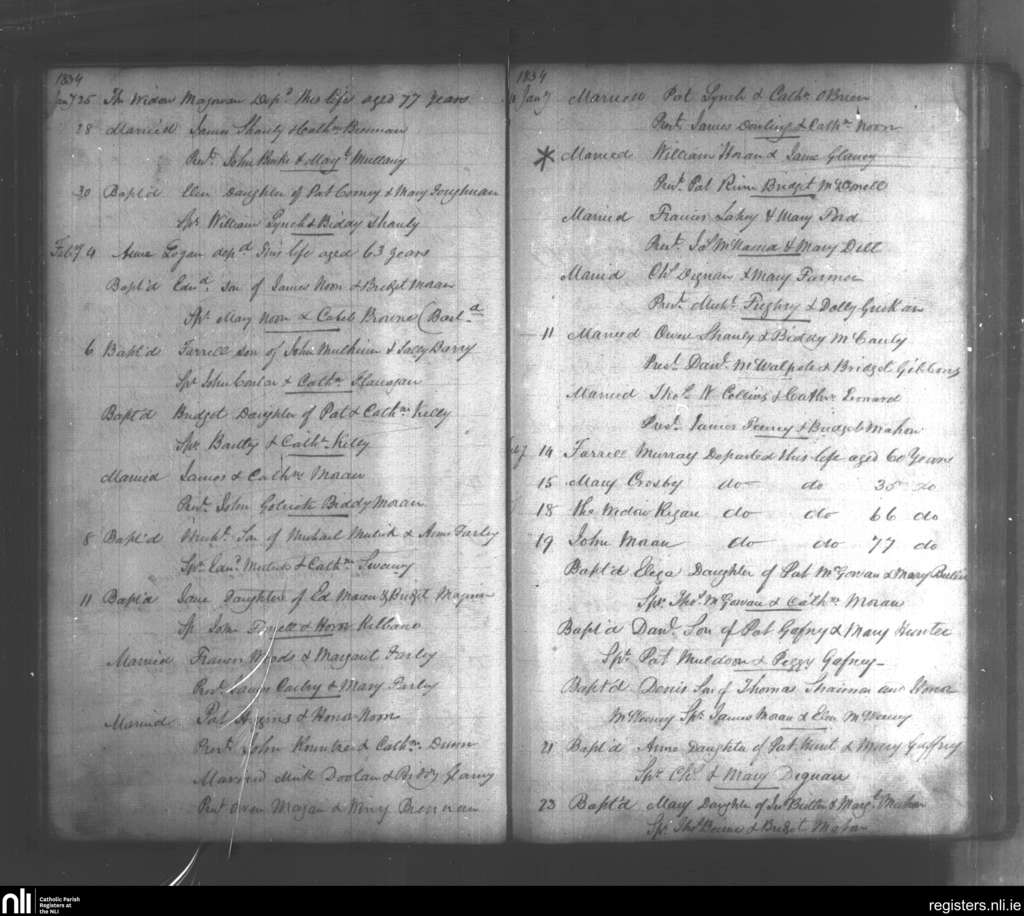 1834
Jany 25 The Widow Magowan Depd this life aged 77 years
28 Married James Shanly & Cathn Brennan
Prest. John Burke & Margt Mullany
30 Bapt'd Elen Daughter of Pat Corney & Mary
Spr William Lynch & Biddy Shanly
Feby 4 Anne Logan depd This life aged 63 years
Bapt'd Edwd. son of James Noon & Bridget Moran
Spr Mary Noon & Caleb Browne (Bastd
6 Bapt'd Farrell son of John & Sally Barry
Spr John Conlan & Cathn Flanagan
Bapt'd Bridget Daughter of Pat & Cathne Kelly
Spr Bartly & Cathn Kelly
Married James & Cathne Moran
Prest. John Biddy Moran
8 Bapt'd Michl. Son of Michael Mulick & Anne Farley
Spr Edwd. Mulick & Cathne Sweeny
11 Bapt'd Jane Daughter of Ed Moran & Bridget
Sp John & Honor Kilbane
Married Francis Woods & Margaret Farley
Prest. James & Mary Farley
Married Pat Higgins & Honor Noon
Prest. John & Cathne. Dunn
Married Mick Doolan & Biddy
Prest Owen Magan & Brennan
1834
Jany Married Pat Lynch & Cathe OBrien
Prest. James Dowling & Cathn Noon
* Married William Horan & Jane Glancy
Prest. Pat Bridget McDonell
Married Francis Lahey & Mary Ford
Prest. Jas McNama & Mary Dill
Married Chs Dignan & Mary Farmer
Prest. Michl. & Dolly
11 Married Owen Shanly & Biddy McCauly
Prest. Danl. McWalpole & Bridget Gibbons
Married Thos. W. Collins & Cathne Leonard
Prest. James Feeney & Bridget Mahon
Feby 14 Farrell Murray Departed this life aged 60 Years
15 Mary Crosby do do 35 do
18 the Widow Regan do do 66 do
19 John Moran do do 77 do
Bapt'd Eliza Daughter of Pat McGowan & Mary Butler
Spr Thos McGowan & Cathn Moran
Bapt'd Danl. Son of Pat Gafney & Mary Hunter
Spr. Pat Muldoon & Peggy Gafney
Bapt'd Denis Son of Thomas and Honor
McWeeny Spr. James Moran & Elen McWeeny
21 Bapt'd Anne Daughter of Pat Hunt & Mary Gaffney
Spr. Chs. & Mary Dignan
23 Bapt'd Mary Daughter of Jas Butler & Margt. Mahon
Spr. Thos Bourne & Bridget Mahon
nli
Catholic Parish
Registers at
the NLI
registers.nli.ie